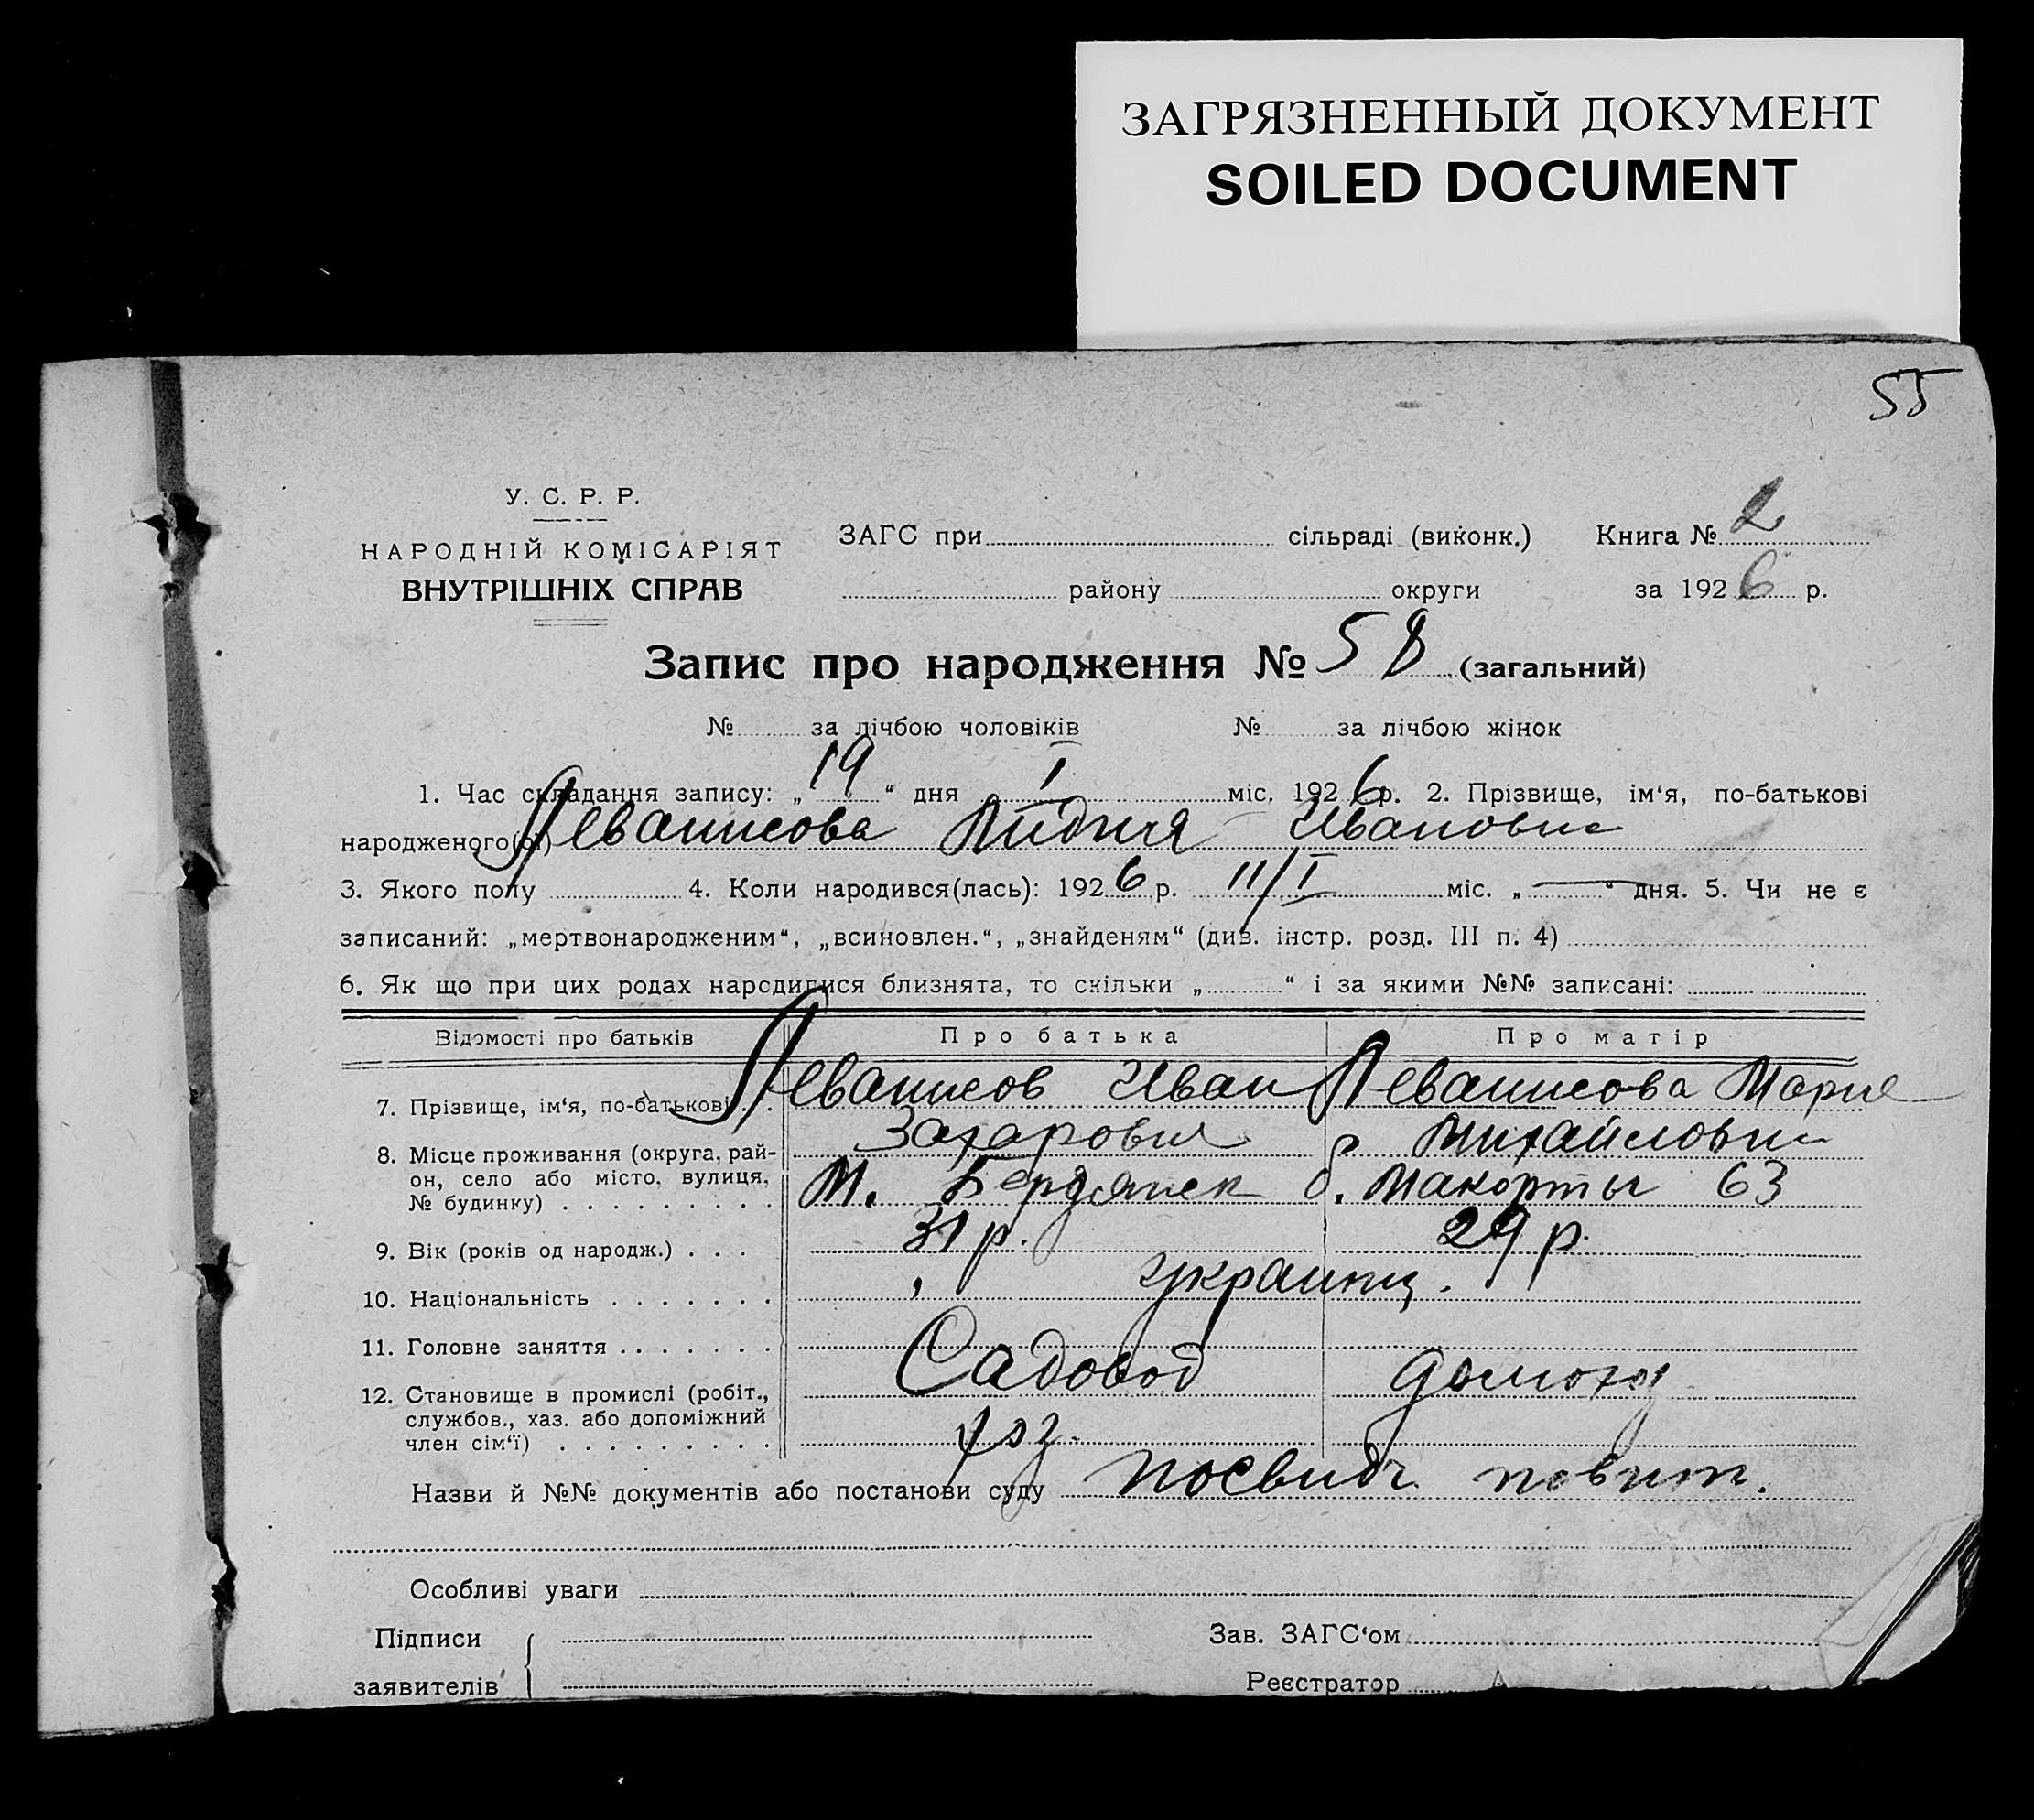 ЗАГРЯЗНЕННЫЙ ДОКУМЕНТ
SOILED DOCUMENT
55
У. С. Р. Р.
НАРОДНІЙ КОМІСАРІЯТ
ВНУТРІШНІХ СПРАВ
ЗАГС при сільраді (виконк.) Книга № 2
району округи за 1926 р.
Запис про народження № 58 (загальний)
№ за лічбою чоловіків № за лічбою жінок
1. Час складання запису: „19“ дня I міс. 1926 р. 2. Прізвище, ім‘я, по-батькові
народженого(ої) Левашсова Лидия Ивановна
3. Якого полу 4. Коли народився(лась): 1926 р. 11/I міс. „—“ дня. 5. Чи не є
записаний: „мертвонародженим“, „всиновлен.“, „знайденям“ (див. інстр. розд. III п. 4)
6. Як що при цих родах народилися близнята, то скільки „ “ і за якими №№ записані:
Відомості про батьків Про батька Про матір
7. Прізвище, ім‘я, по-батькові Иван Мария
Захарович Михайловна
8. Місце проживання (округа, район, село або місто, вулиця, № будинку) М. Бердянск б. Макорты 63
9. Вік (років од народж.) 31 р. 29 р.
10. Національність украинц.
11. Головне заняття Садовод домохоз
12. Становище в промислі (робіт., службов., хаз. або допоміжний член сім‘ї) хоз.
Назви й №№ документів або постанови суду посвидч повит.
Особливі уваги
Підписи Зав. ЗАГС‘ом
заявителів Реєстратор